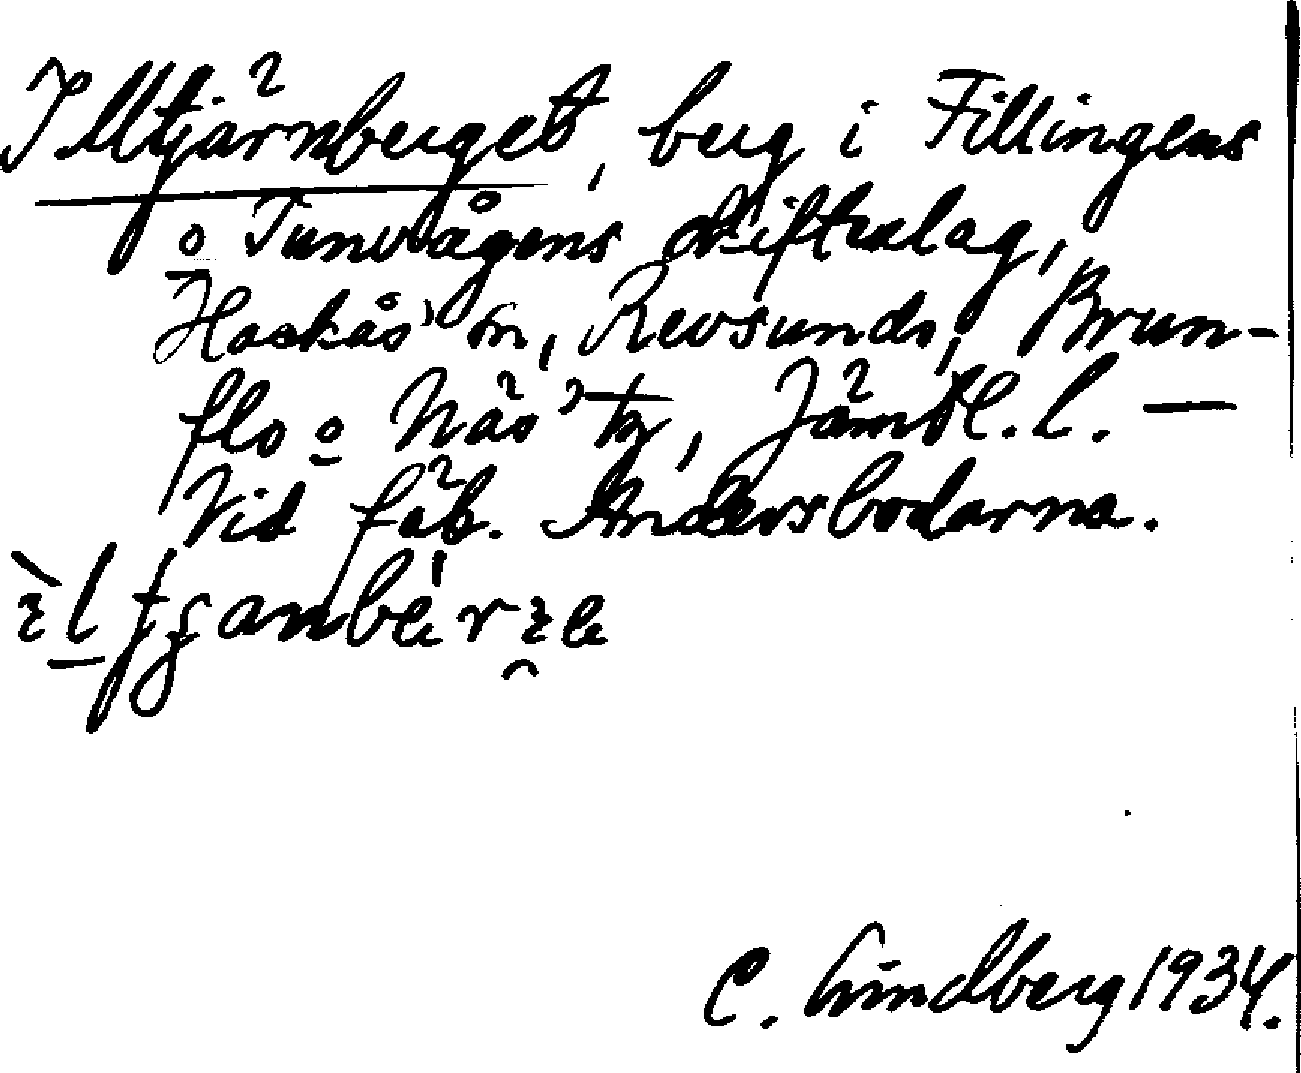 Illtjärnberget, berg i Fillingens
o Tunvågens skifteslag,
Hackås' sn, Revsunds, Brun-
flo o Näs' tg, Jämtl. l. —
Vid fäb. Andersbodarna.
C. Lindberg 1934.